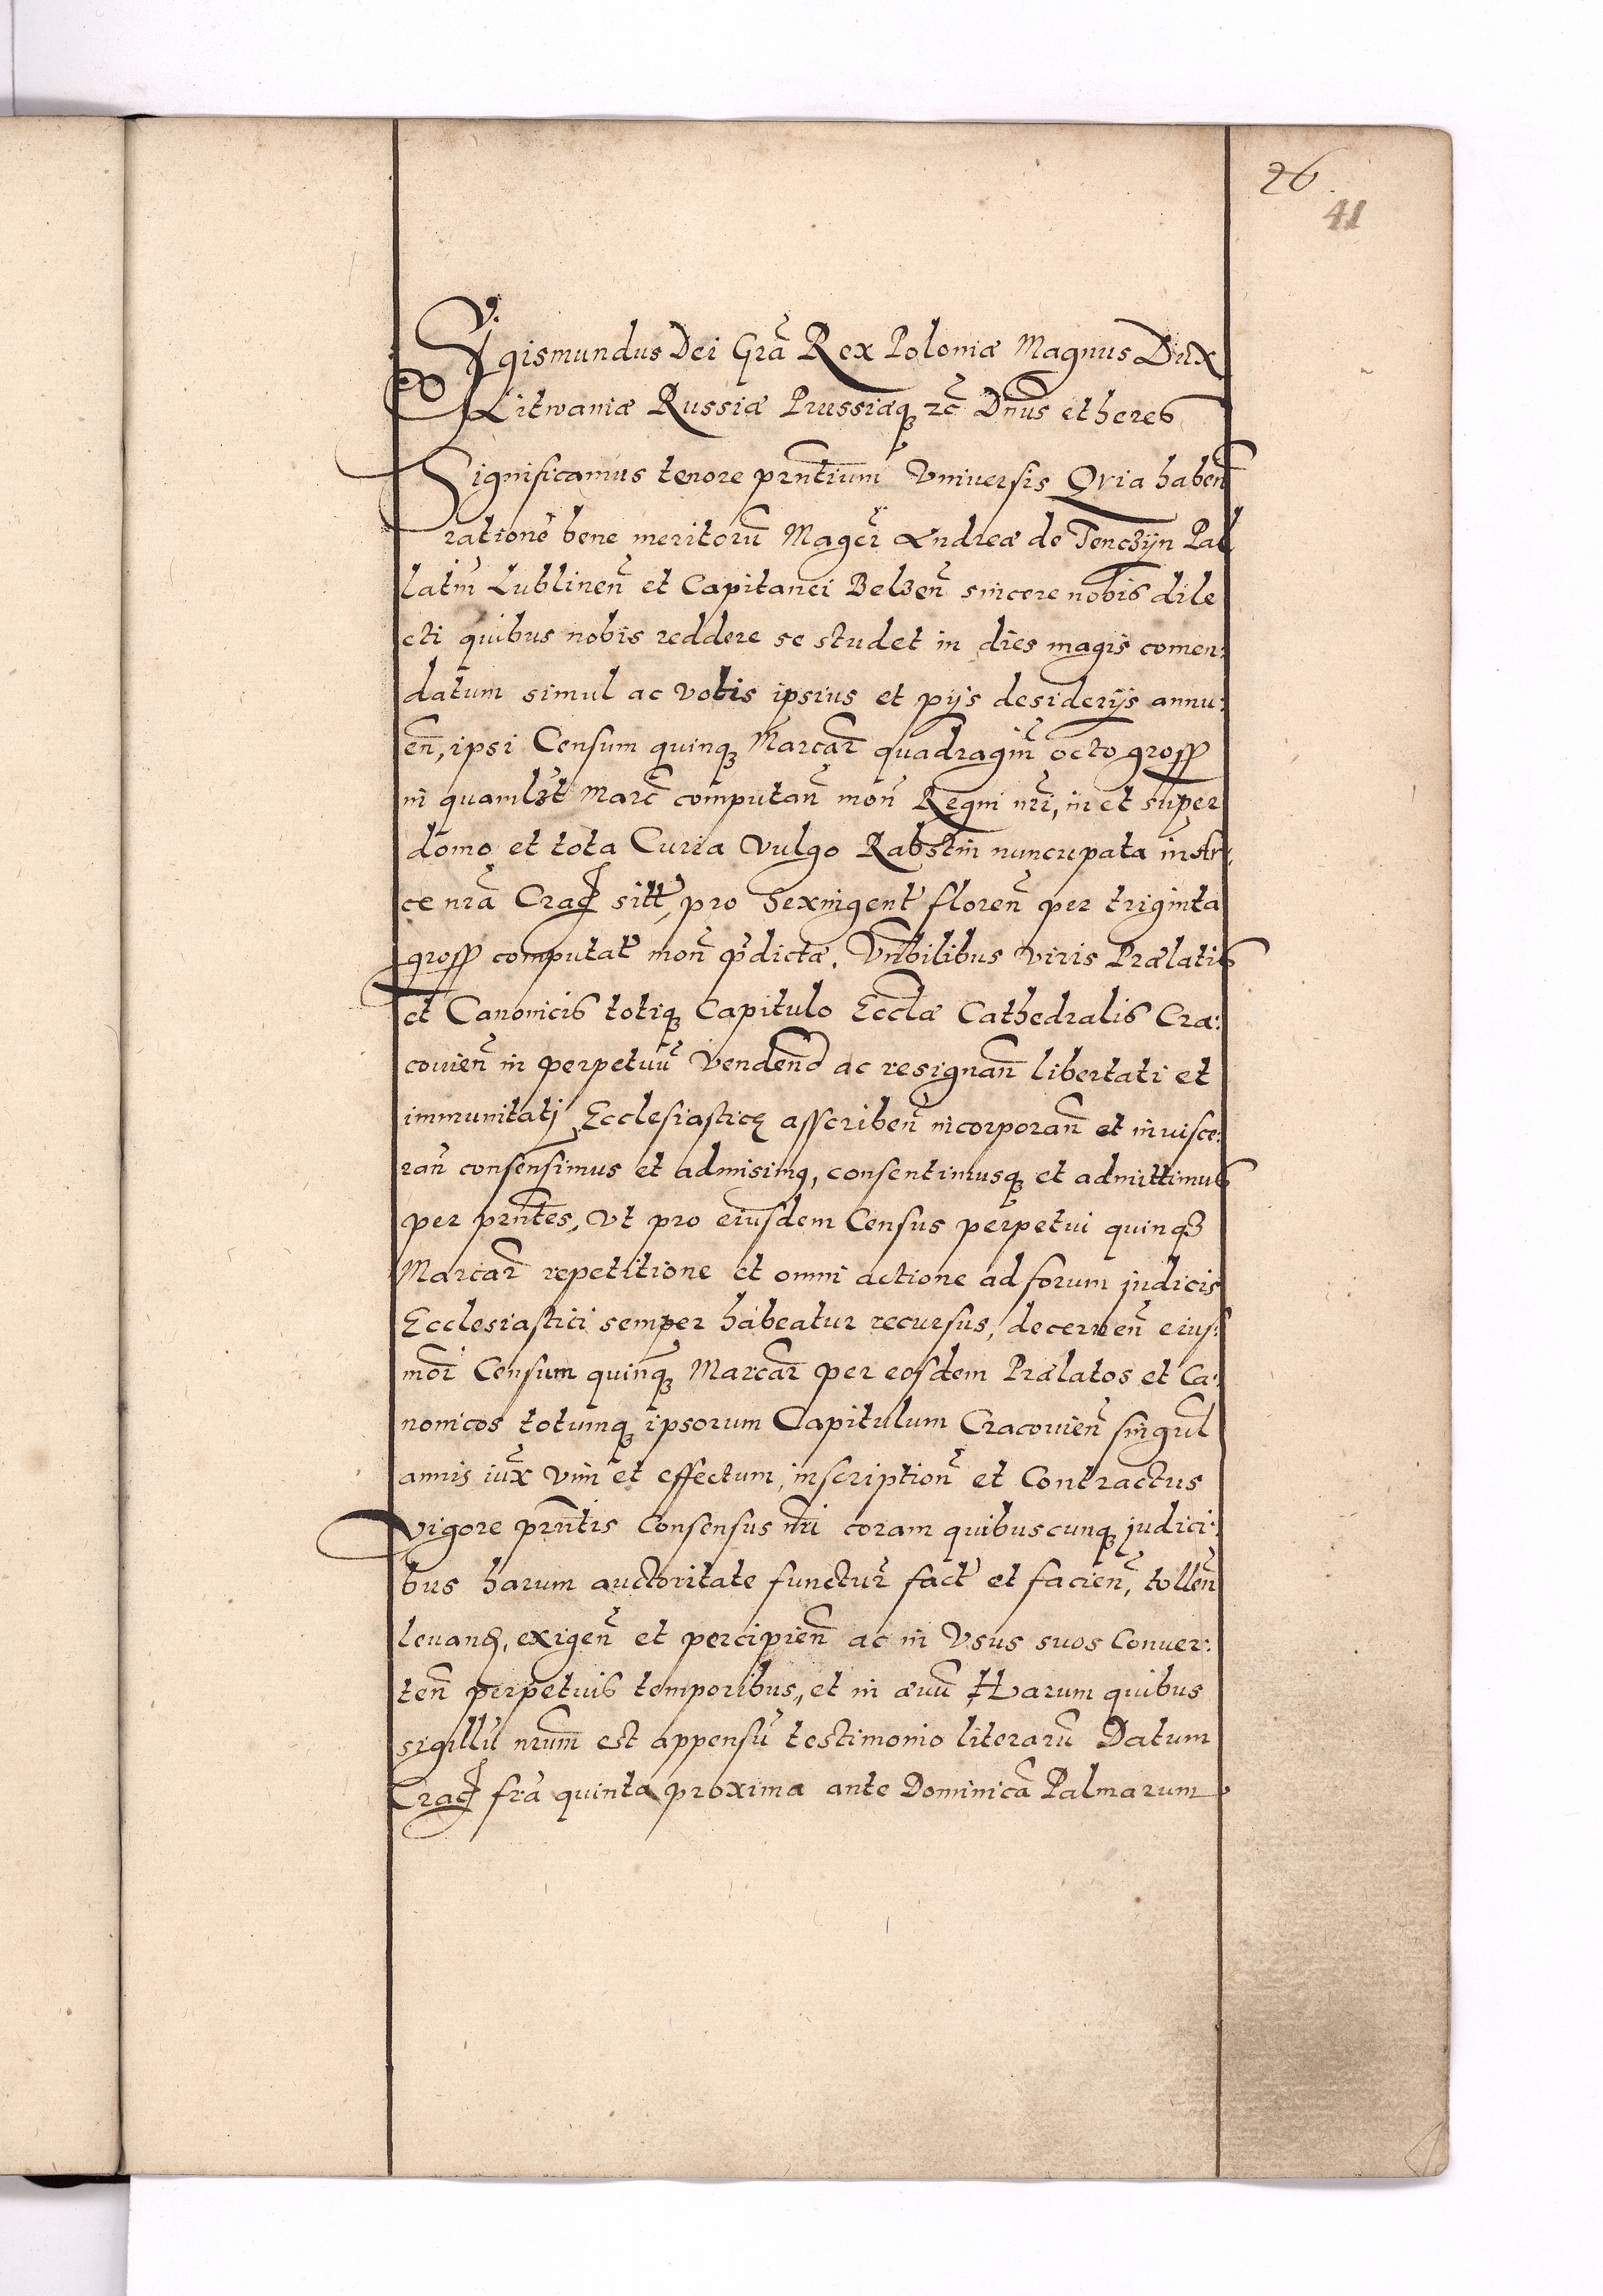 26
41
Sigismundus Dei Grã Rex Poloniæ Magnus Dux
Litwaniæ Russiæ Prussiæq; zc̃ Dñus et heres
Significamus tenore prñtium Vniuersis Qvia haben̄
rationē bene meritorũ Magcĩ Andreæ de Tenczÿn Pal
latñi Lublinen̄ et Capitanei Belzen̄ sincere nobis dile
cti quibus nobis reddere se studet in dies magis comen:
datum simul ac votis ipsius et pijs desiderijs annu:
en̄, ipsi Censum quinq; Marcar̃ quadragin̄ octo gross
in quamlzt Marc̃ computan̄ mon̄ Regni nr̃i, in et super
domo et tota Curia vulgo Rabstin nuncupata in Ar:
ce nr̃a Crac̃ sitt̃, pro Sexingent̃ floren̄ per triginta
gross computat̃ mon̄ p̃dictæ, Vn̄bilibus viris Prælatis
et Canonicis totiq; Capitulo Eccl̃æ Cathedralis Cra:
couien̄ in perpetuũ Vendend̃ ac resignan̄ libertati et
immunitatj Ecclesiasticę asscriben̄ incorporan̄ et inuisce:
ran̄ consensimus et admisimq, consentimusq; et admittimus
per prñtes, Vt pro eiusdem Census perpetui quinq3
Marcar̃ repetitione et omni actione ad forum judicis
Ecclesiastici semper habeatur recursus, decernen̄ eius:
mõi Censum quinq; Marcar̃ per eosdem Prælatos et Ca:
nonicos totumq; ipsorum Capitulum Cracouien̄ singul̃
annis iux̃ vim et effectum, inscription̄ et Contractus
vigore prñtis Consensus nr̃i coram quibuscunq; judici:
bus harum auctoritate functur̃ fact̃ et facien̄, tollen̄
leuanđ, exigen̄ et percipien̄ ac in Vsus suos Conuer:
ten̄ perpetuis temporibus, et in æuũ Harum quibus
sigillũ nr̃um est appensũ testimonio literarũ Datum
Crac̃ fr̃a quinta proxima ante Dominicã Palmarum